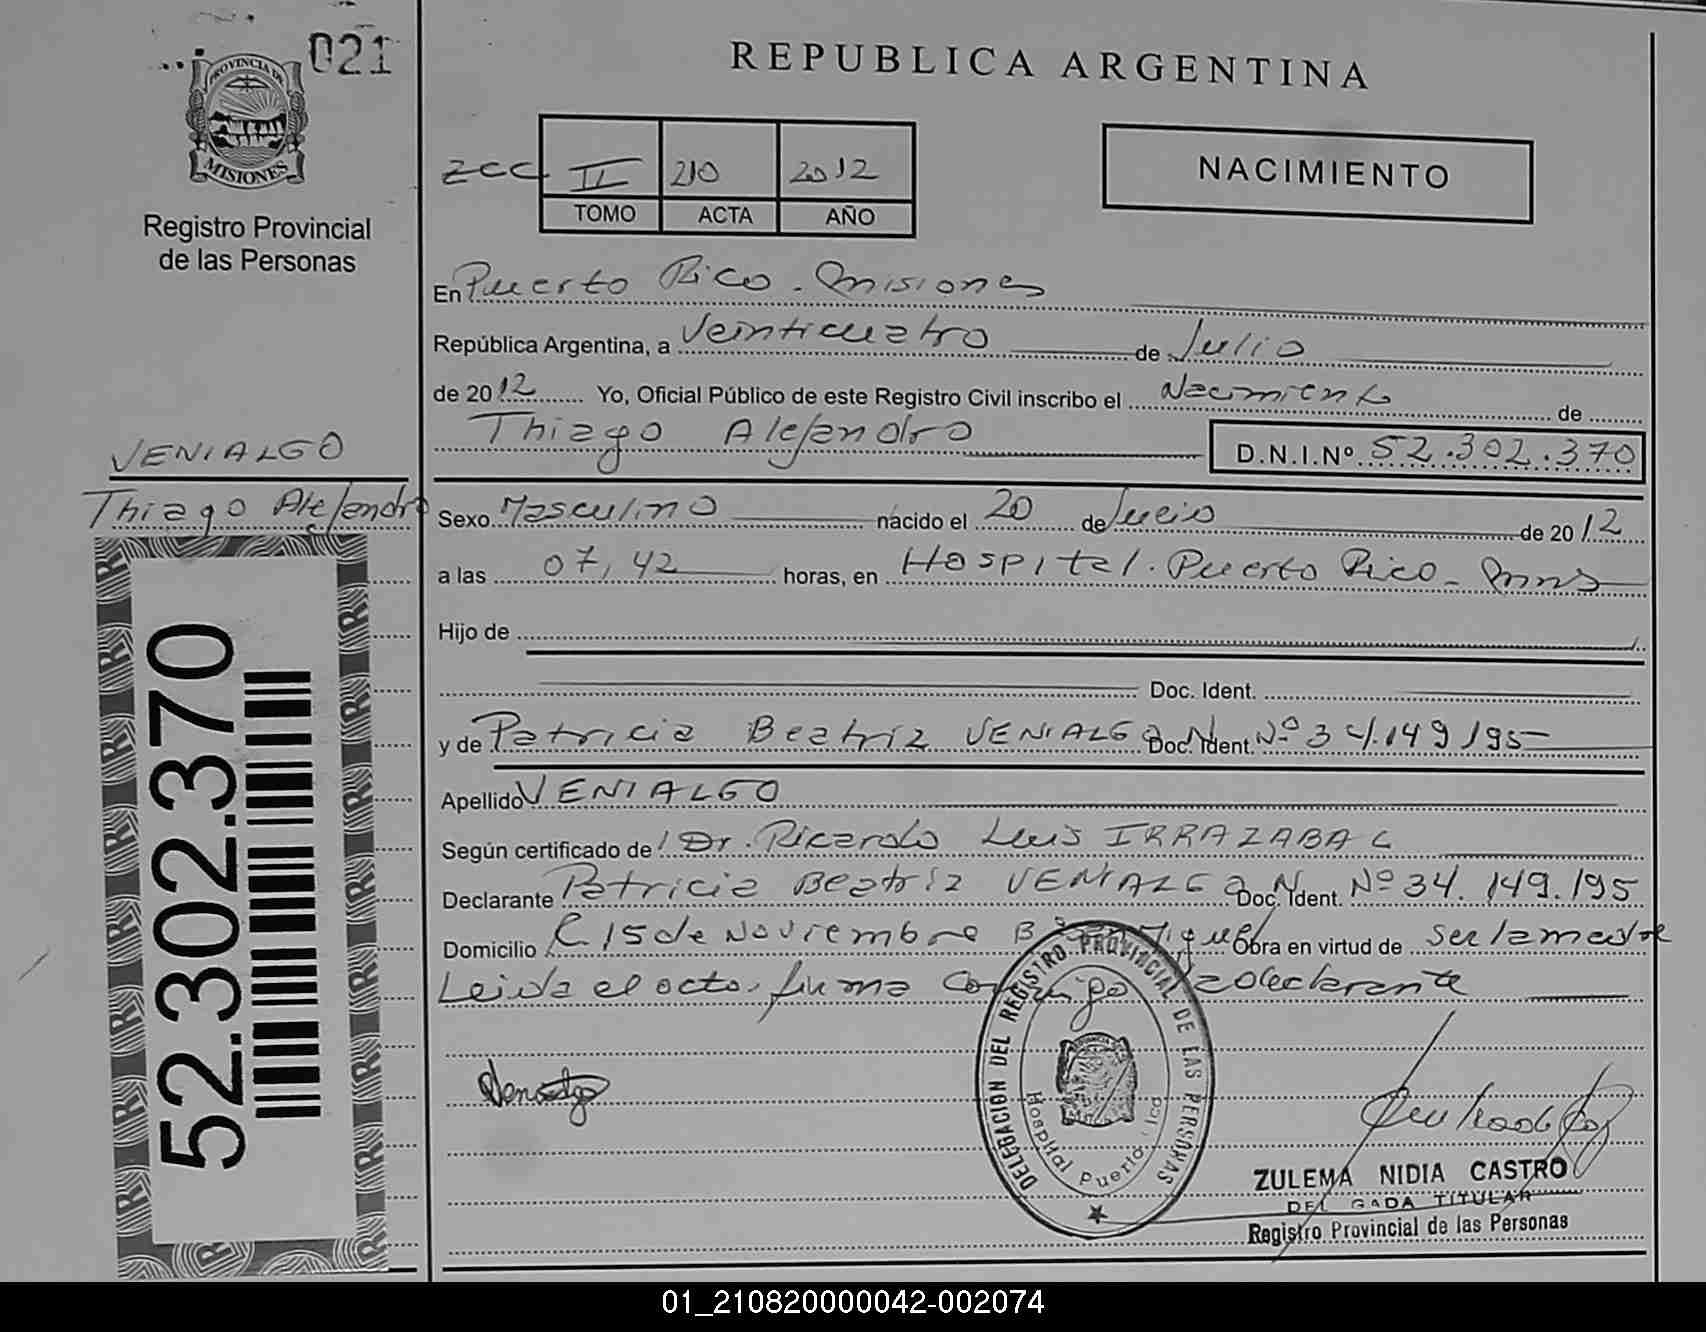 021
PROVINCIA DE
MISIONES
Registro Provincial
de las Personas
REPUBLICA ARGENTINA
ZCC II 210 2012
TOMO ACTA AÑO
NACIMIENTO
En Puerto Rico - Misiones
República Argentina, a Veinticuatro de Julio
de 2012 Yo, Oficial Público de este Registro Civil inscribo el Nacimiento de
Thiago Alejandro D.N.I.Nº 52.302.370
VENIALGO
Thiago Alejandro
Sexo Masculino nacido el 20 de Julio de 2012
a las 07,42 horas, en Hospital. Puerto Rico - Mnes
Hijo de
Doc. Ident.
y de Patricia Beatriz VENIALGO Doc. Ident. Nº 34.149.195
Apellido VENIALGO
Según certificado de Dr. Ricardo Luis IRRAZABAL
Declarante Patricia Beatriz VENIALGO Doc. Ident. Nº 34.149.195
Domicilio C. 15 de Noviembre Bº San Miguel Obra en virtud de ser la madre
Leida el acto, firma conmigo la declarante
52.302.370
DELEGACION DEL REGISTRO PROVINCIAL DE LAS PERSONAS
Hospital Puerto Rico
ZULEMA NIDIA CASTRO
DELEGADA TITULAR
Registro Provincial de las Personas
01_210820000042-002074